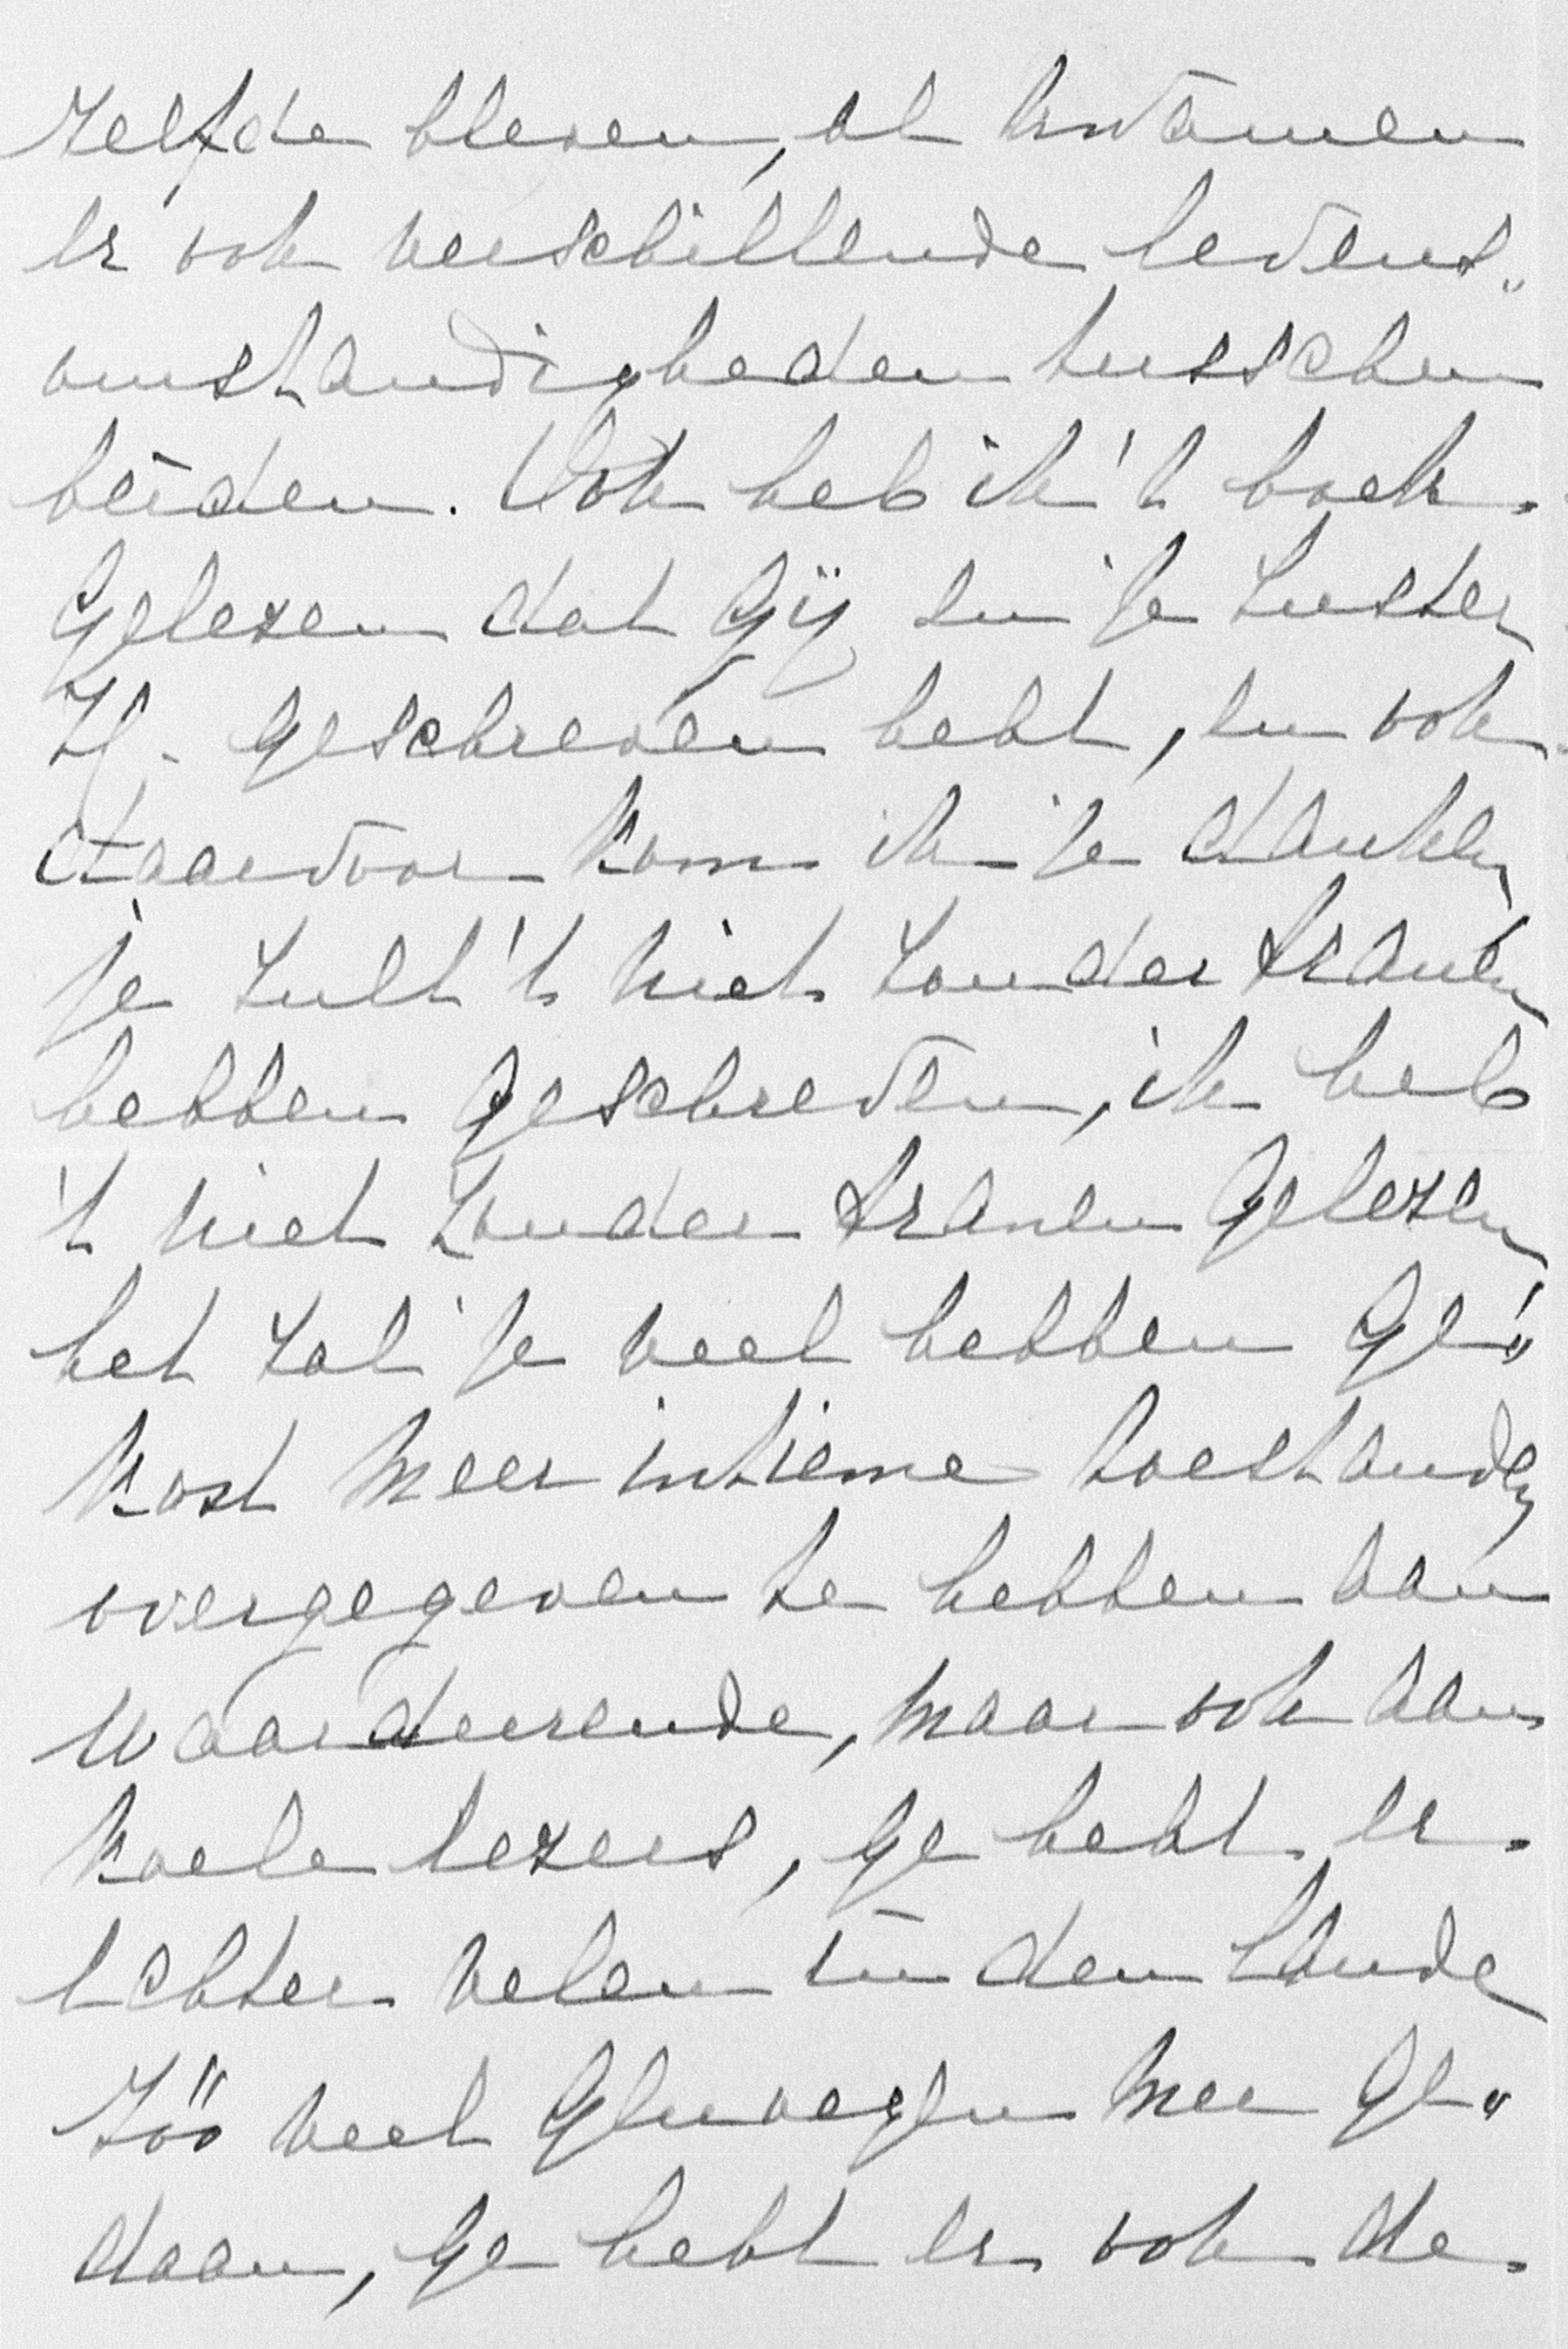 zelfde bleven, al kwamen
er ook verschillende levens„
omstandigheden tusschen
beiden. Ook heb ik 't boek
gelezen dat gij en je zuster
geschreven hebt, en ook
daarvoor kom ik je danken
je zult 't niet zonder tranen
hebben geschreven, ik heb
't niet zonder tranen gelezen
het zal je veel hebben ge„
kost meer intieme toestanden
overgegeven te hebben aan
waardeerende, maar ook aan
koele lezers, ge hebt er
echter velen in den lande
zóó veel genoegen mee ge„
daan, ge hebt er ook de